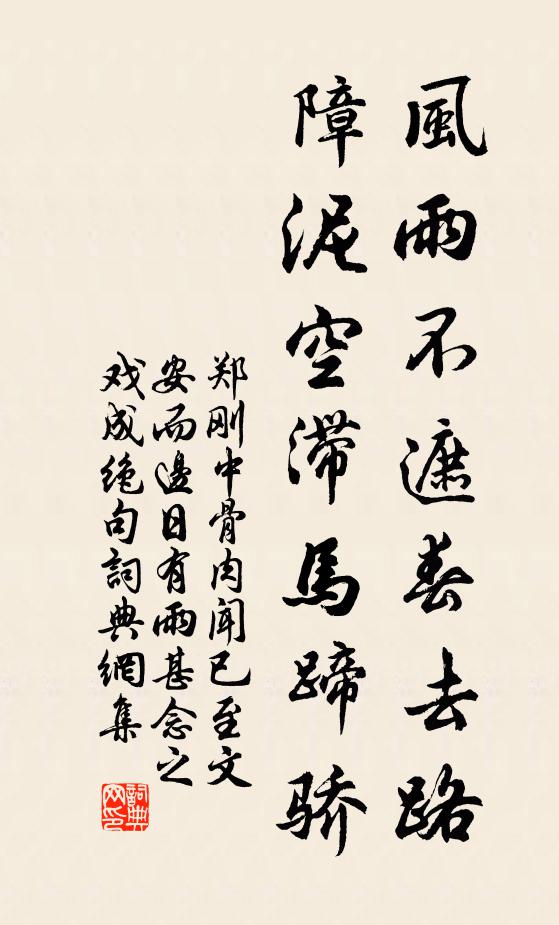 風雨不遮春去路
障泥空滞馬蹄骄
郑刚中骨肉闻已至文
安而邊日有雨甚念之
戏成绝句詞典網集
詞典网印